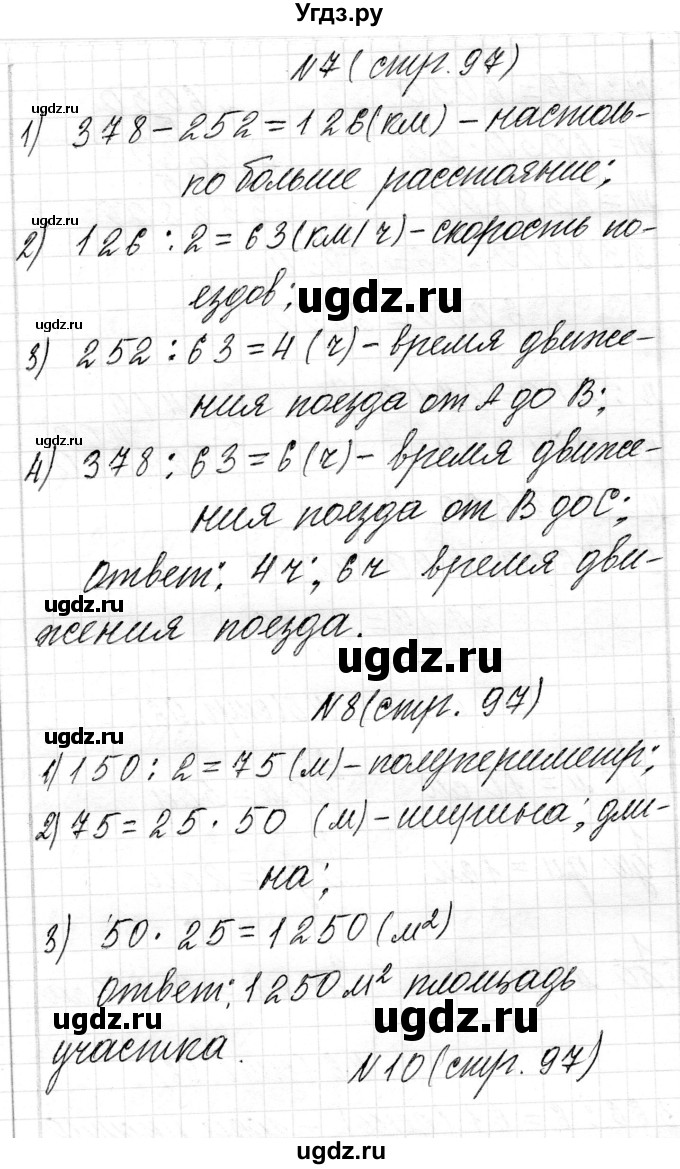 Угдз.ру
№7 (стр. 97)
ugdz.ru
1) 378-252=126(км) - настоль-
по больше расстояние;
ugdz.ru
2) 126 : 2=63(км/ч) - скорость по-
ездов;
ugdz.ru
ugdz.ru
3) 252 : 63=4 (ч) - время движе-
ния поезда от А до В;
ugdz.ru
4) 378 : 63=6(ч) - время движе-
ния поезда от В до С;
ответ: 4ч; 6ч время дви-
ugdz.ru
жения поезда.
ugdz.ru
№8(стр. 97)
ugdz.ru
1) 150 : 2=75(м) - полупериметр;
2) 75=25·50 (м) - ширина; дли-
на;
3) 50·25=1250(м²)
ответ: 1250м² площадь
ugdz.ru
ugdz.ru
участка.
№10(стр. 97)
ugdz.ru